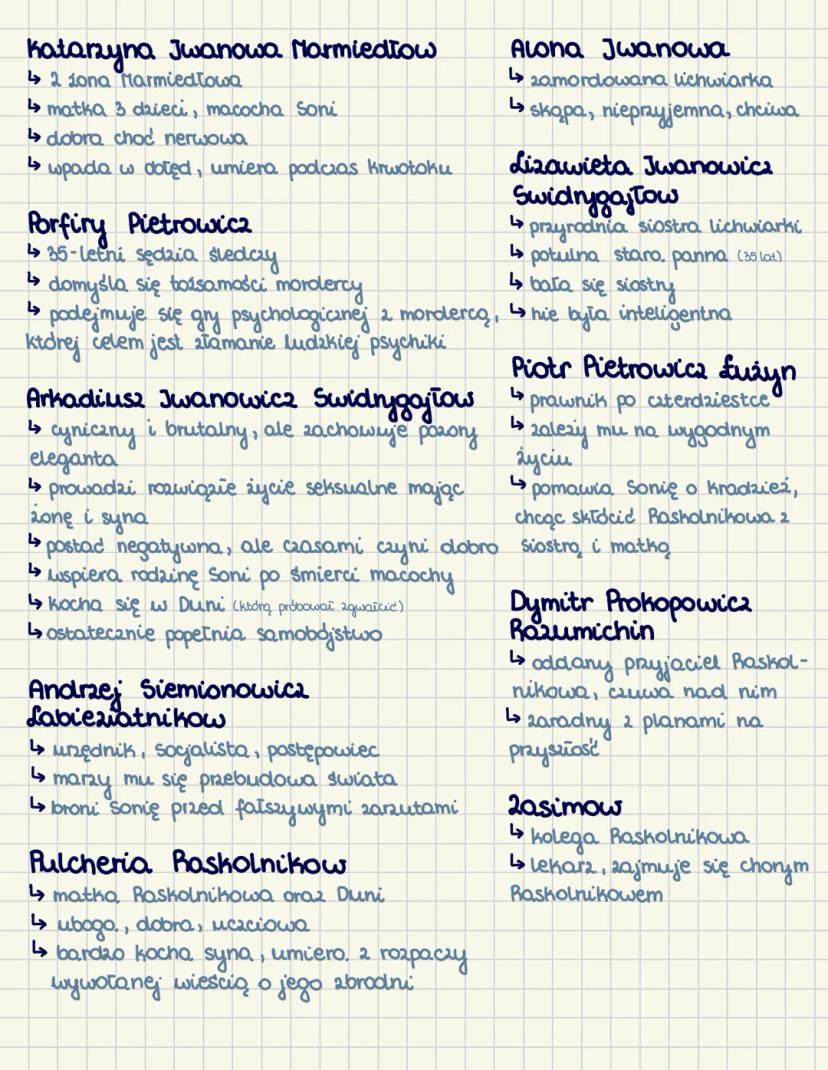 Katarzyna Iwanowa Marmiedłow
↳ 2 żona Marmiedłowa
↳ matka 3 dzieci, macocha Soni
↳ dobra choć nerwowa
↳ wpada w obłęd, umiera podczas krwotoku
Porfiry Pietrowicz
↳ 35-letni sędzia śledczy
↳ domyśla się tożsamości mordercy
↳ podejmuje się gry psychologicznej z mordercą,
której celem jest złamanie ludzkiej psychiki
Arkadiusz Iwanowicz Swidrygajłow
↳ cyniczny i brutalny, ale zachowuje pozory
eleganta
↳ prowadzi rozwiązłe życie seksualne mając
żonę i syna
↳ postać negatywna, ale czasami czyni dobro
↳ wspiera rodzinę Soni po śmierci macochy
↳ kocha się w Duni (którą próbował zgwałcić)
↳ ostatecznie popełnia samobójstwo
Andrzej Siemionowicz
Łabieziatnikow
↳ urzędnik, socjalista, postępowiec
↳ marzy mu się przebudowa świata
↳ broni Sonię przed fałszywymi zarzutami
Pulcheria Raskolnikow
↳ matka Raskolnikowa oraz Duni
↳ uboga, dobra, uczciwa
↳ bardzo kocha syna, umiera z rozpaczy
wywołanej wieścią o jego zbrodni
Alona Iwanowa
↳ zamordowana lichwiarka
↳ skąpa, nieprzyjemna, chciwa
Lizawieta Iwanowicz
Swidrygajłow
↳ przyrodnia siostra lichwiarki
↳ potulna stara panna (35 lat)
↳ bała się siostry
↳ nie była inteligentna
Piotr Pietrowicz Łużyn
↳ prawnik po czterdziestce
↳ zależy mu na wygodnym
życiu
↳ pomawia Sonię o kradzież,
chcąc skłócić Raskolnikowa z
siostrą i matką
Dymitr Prokopowicz
Razumichin
↳ oddany przyjaciel Raskol-
nikowa, czuwa nad nim
↳ zaradny z planami na
przyszłość
Zasimow
↳ kolega Raskolnikowa
↳ lekarz, zajmuje się chorym
Raskolnikowem